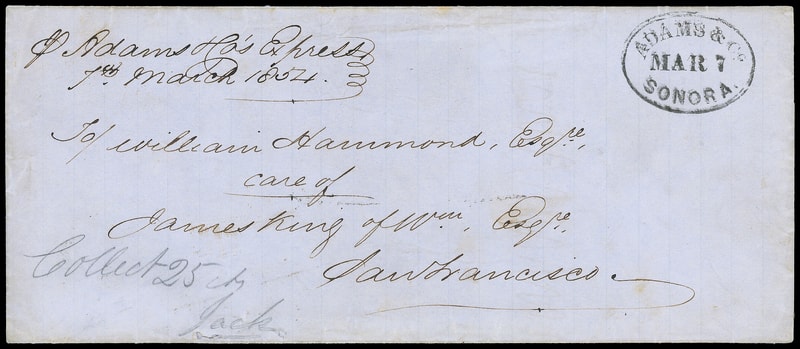 ℘ Adams & Co's Express
7th March 1854.
ADAMS & Co.
MAR 7
SONORA.
To/ William Hammond, Esqre,
care of
James King of Wm, Esqre,
San Francisco.
Collect 25 cts
Jack